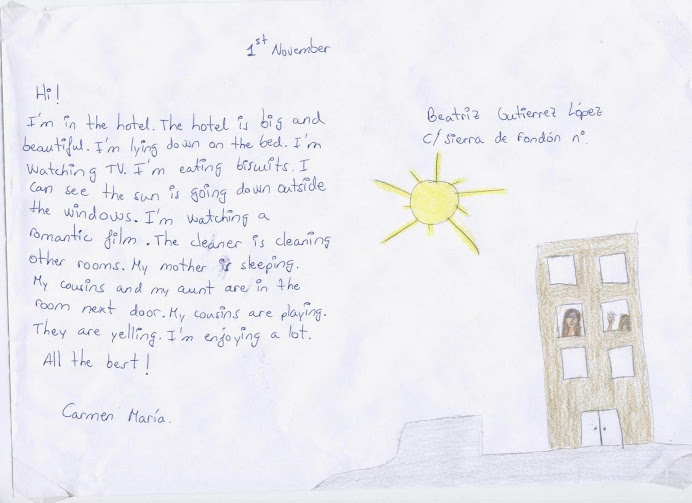 1st November
Hi!
I'm in the hotel. The hotel is big and
beautiful. I'm lying down on the bed. I'm
watching TV. I'm eating biswits. I
can see the sun is going down outside
the windows. I'm watching a
romantic film. The cleaner is cleaning
other rooms. My mother is sleeping.
My cousins and my aunt are in the
room next door. My cousins are playing.
They are yelling. I'm enjoying a lot.
All the best!
Carmen María.
Beatriz Gutierrez López
C/ Sierra de Fondón nº.